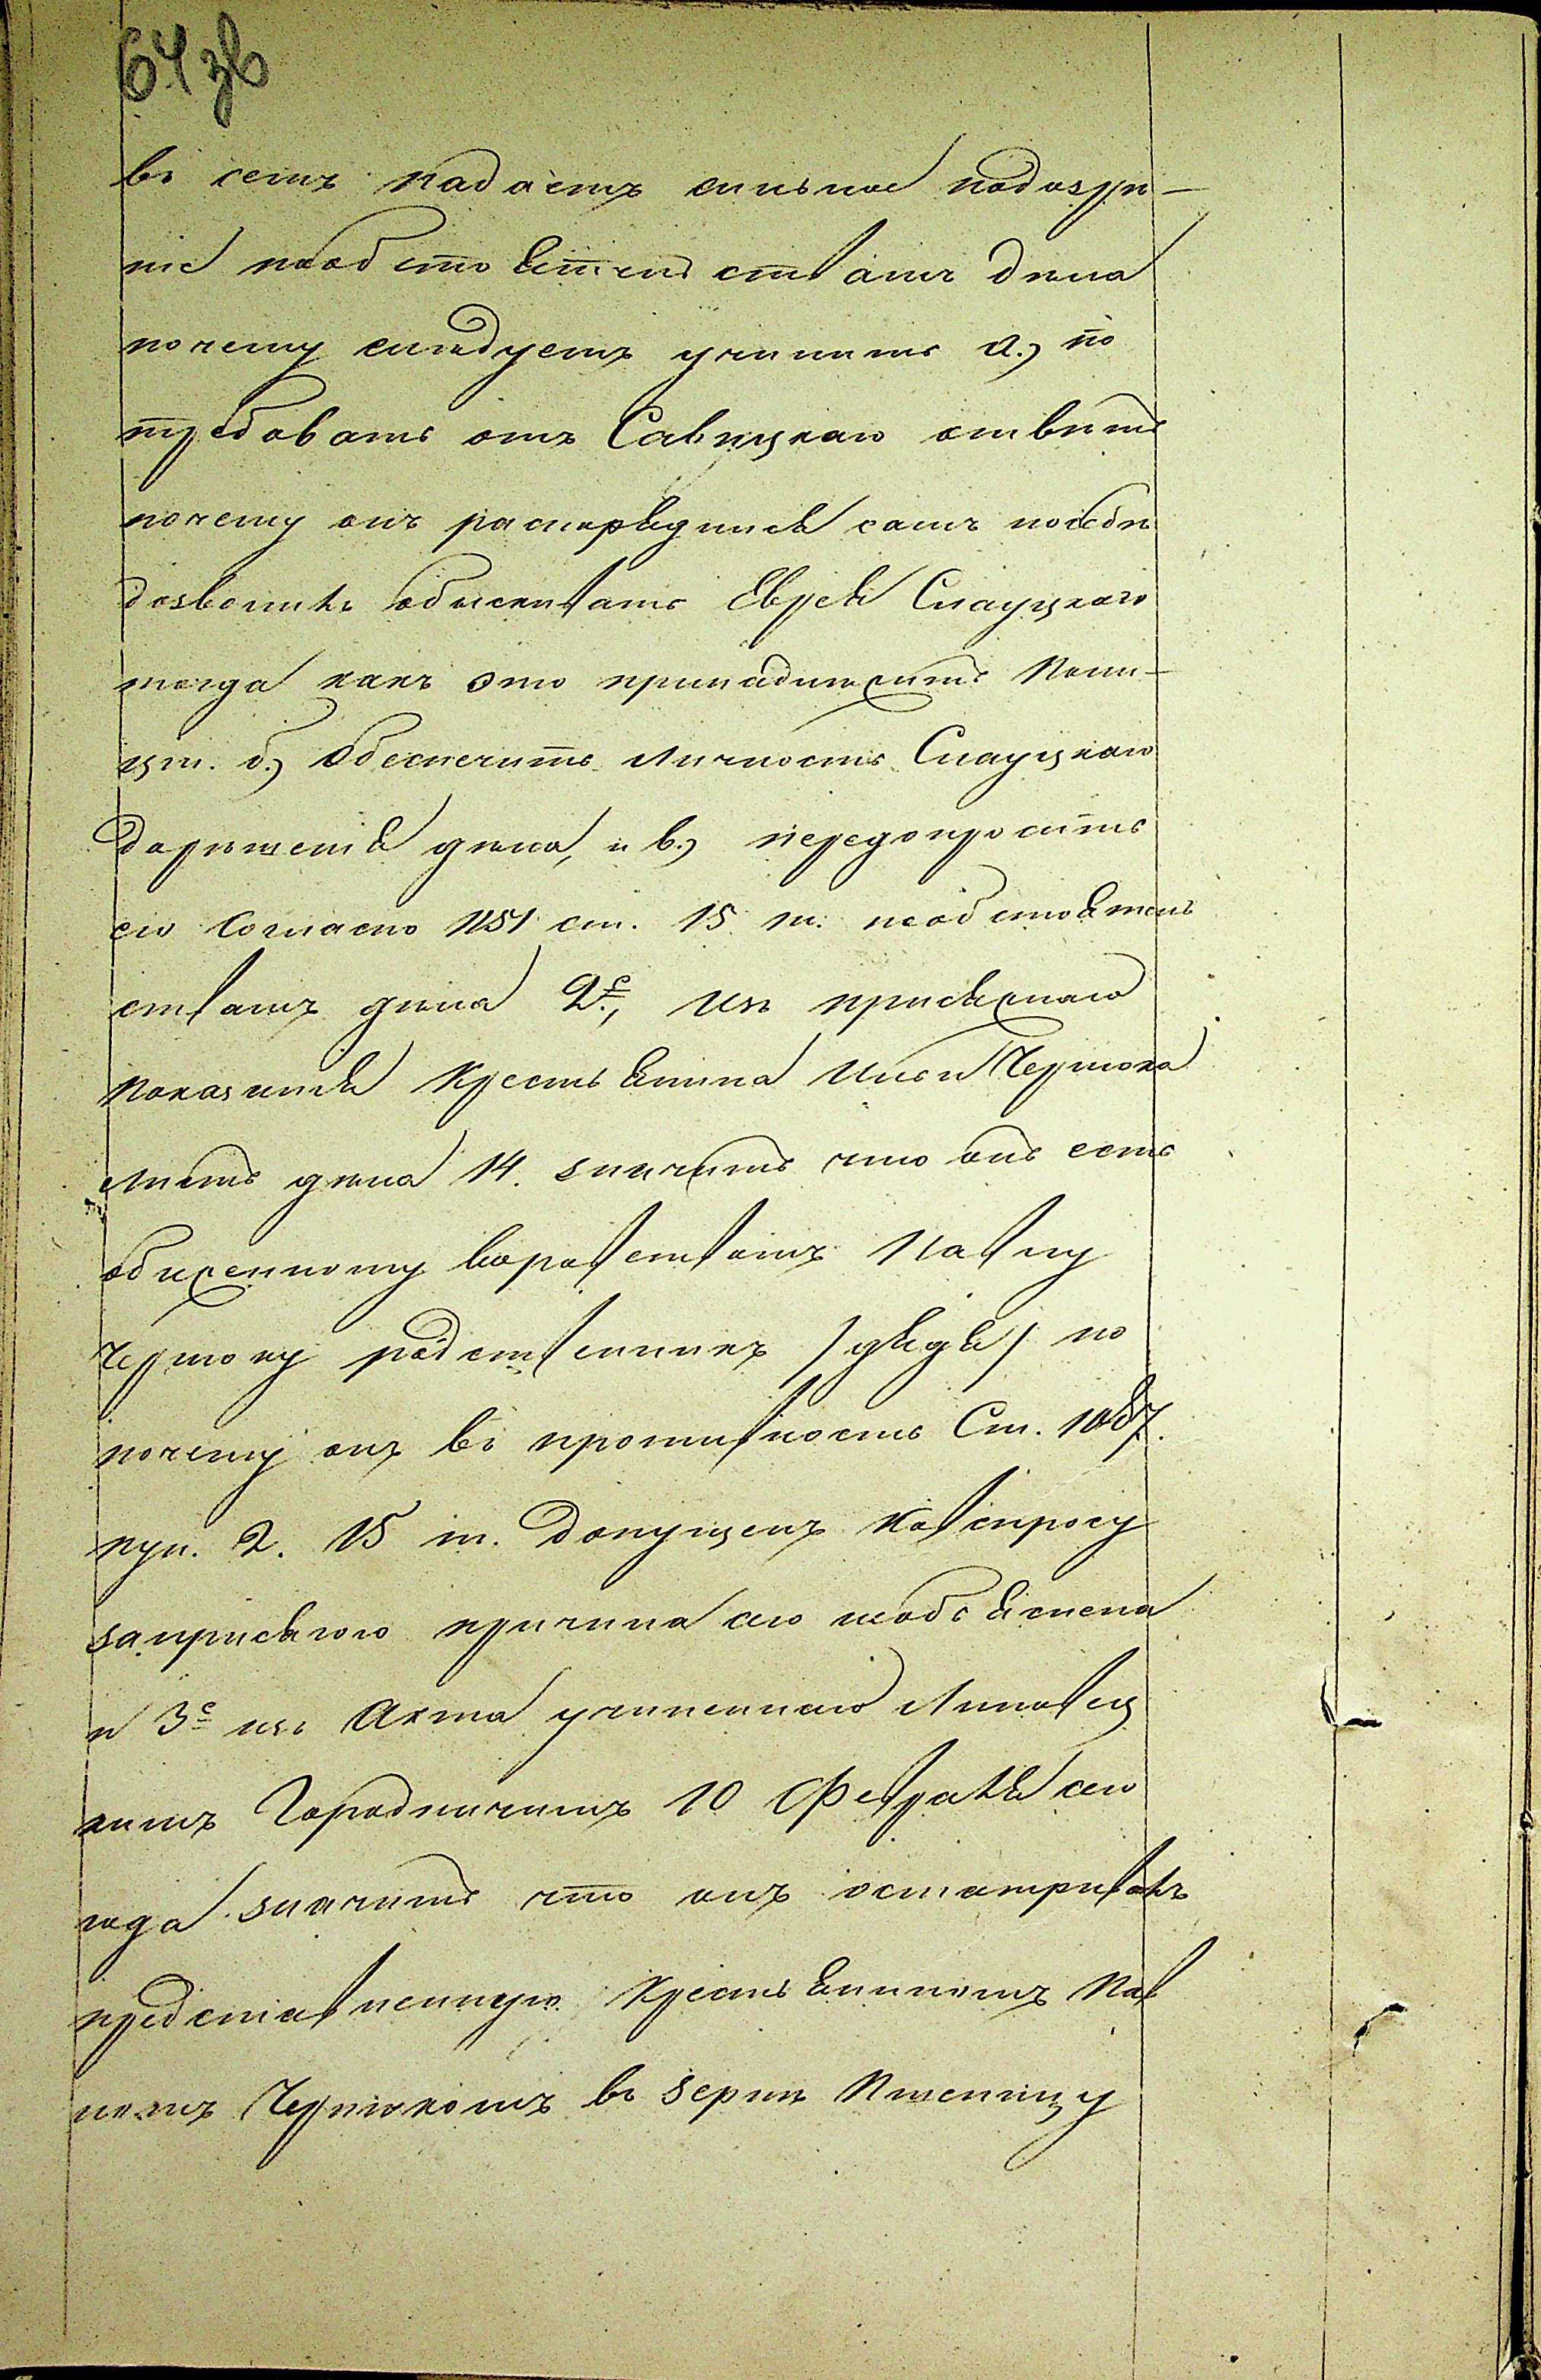 64 зв
въ семъ падаетъ сильное подозрѣ-
ніе пообстоятельствамъ дѣла
почему слѣдуетъ учинить а.) по
требовать отъ Савицкаго отвѣтъ
почему онъ распорядился самъ пособѣ
дозволить обыскивать Еврея Слауцкаго
тогда какъ это принадлежитъ Поли-
ціи. б.) Обеспечить личность Слауцкаго
дорѣшенія дѣла, и в.) передопросить
его согласно 1151 ст. 15 т. пообстоятель
ствамъ дѣла 2е, изъ присяжнаго
показанія Крестьянина Ильи Чертока
листъ дѣла 14. значитъ что онъ есть
обиженному воровствомъ Павлу
Чертоку родственникъ /дядя/ по
почему онъ въ противность Ст. 1087.
пун. 2. 15 т. допущенъ Кавспросу
заприсягою причина сего необъяснена
и 3е изъ Акта учиненнаго Липовец
кимъ Городничимъ 10 Февраля сего
года значитъ что онъ осматривалъ
представленную Крестьяниномъ Пав
ломъ Чертокомъ въ зернѣ Пшеницу